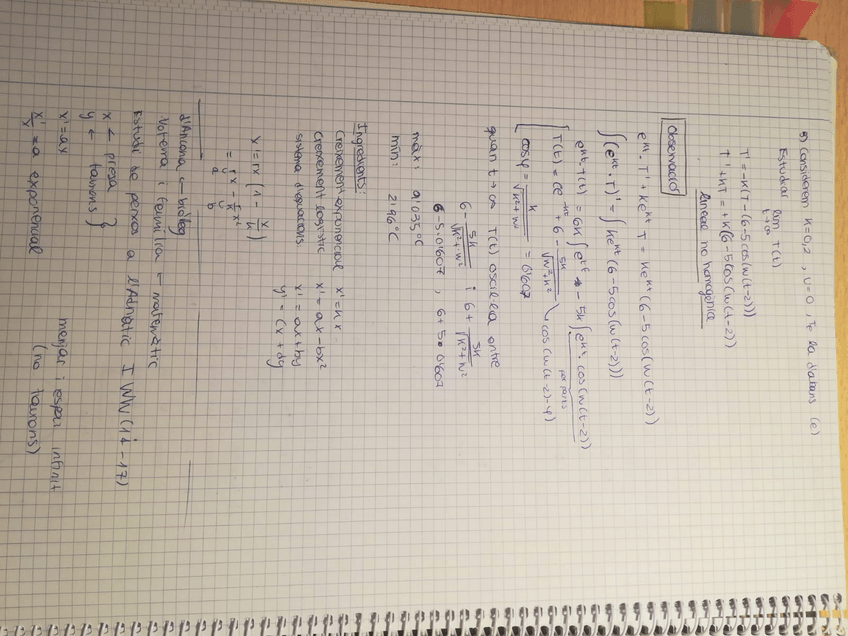 5) Considerem K=0,2, U=0, Te la d'abans (e)
Estudiar lim T(t)
t→∞
T' = -K(T-(6-5cos(w(t-2)))
T' + KT = +K(6-5cos(w(t-2)))
lineal no homogènia
Observació
e^kt. T' + ke^kt T = ke^kt (6-5cos(w(t-2))
∫(e^kt. T)' = ∫ke^kt (6-5cos(w(t-2)))
e^kt. T(t) = 6K∫e^kt - 5K∫e^kt. cos(w(t-2))
per parts
T(t) = ce^-kt + 6 - 5K/√(w²+k²) cos(w(t-2)-φ)
cosφ = K/√(k²+w²) = 0'607
quan t→∞ T(t) oscil·la entre
6 - 5K/√(k²+w²) i 6 + 5K/√(k²+w²)
6-5.0'607, 6+5.0'607
màx: 9'035°C
mín: 2'96°C
Ingredients:
Creixement exponencial x'=kx
Creixement logístic x'=ax-bx²
sistema d'equacions x'=ax+by
y'=cx+dy
x'=rx(1-x/K)
= rx - r/K x²
a b
d'Ancona ← biòleg
Volterra i família → matemàtic
Estudi de peixos a l'Adriàtic I WW (14-17)
x ← presa }
y ← taurons }
x'=ax menjar i espai infinit
x'/x = a exponencial (no taurons)